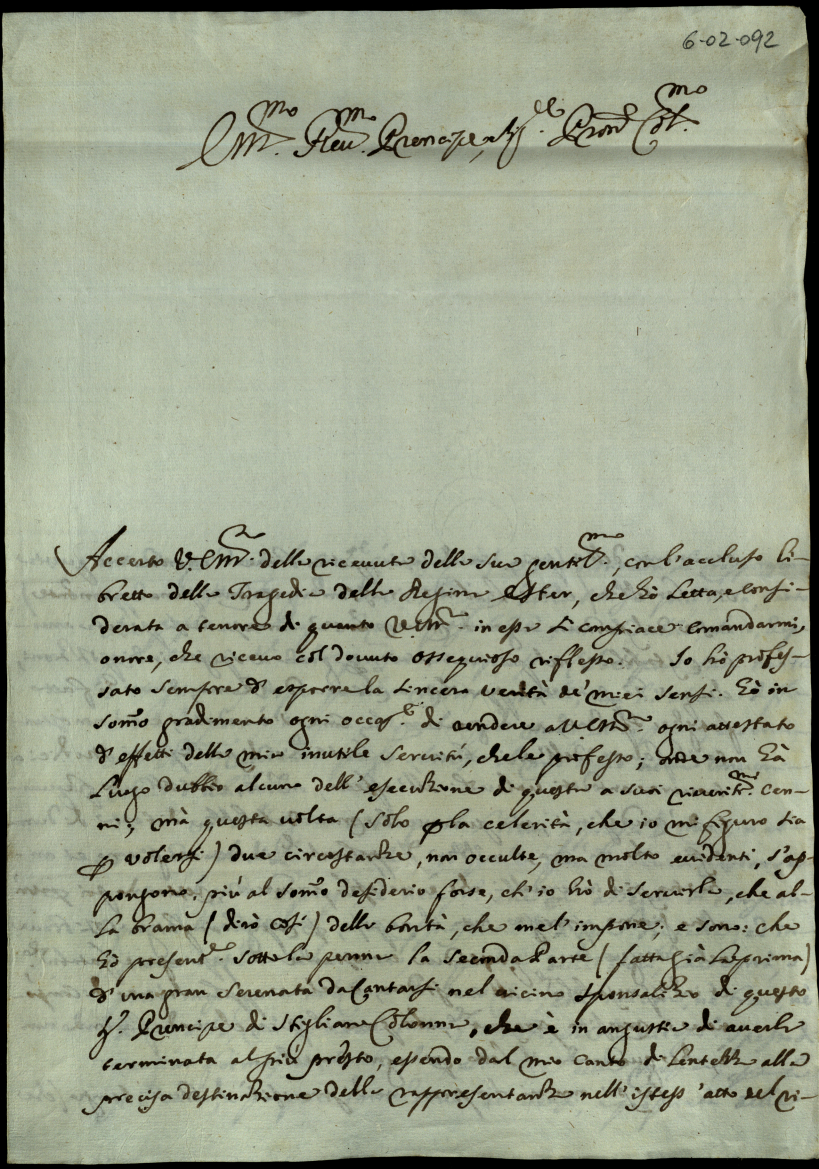 6-02-092
Em.mo Rev.mo Prencipe, e Sig.re Pron Col.mo
Accerto V. Em.za della ricevuta della sua gentil.ma, con l'accluso li-
bretto della Tragedia della Regina Ester, che hò letta, e consi-
derata a tenore di quanto V. Em.za in essa si compiace comandarmi,
onore, che ricevo col dovuto ossequioso riflesso. Io hò profes-
sato sempre d'esporre la sincera verità de' miei sensi. Hò in
som̃o gradimento ogni occas.e di rendere a V. Em.za ogni attestato
d'effetti della mia inutile servitù, che le professo; onde non hà
luogo dubbio alcuno dell'esecuzione di questa a suoi riveritiss.mi cen-
ni; mà questa volta (solo p la celerità, che io mi figuro sia
p volersi) due circostanze, non occulte, ma molto evidenti, s'op-
pongono, più al som̃o desiderio forse, ch'io hò di servirla, che al-
la brama (dirò così) della bontà, che me l'impone; e sono: che
hò presente.e sotto la penna la seconda Parte (fatta già la prima)
d'una gran Serenata da Cantarsi nel vicino Sponsalizo di questo
S. Principe di Stigliano Colonna, che è in angustia di averla
terminata al più presto, essendo dal mio canto di lentezza alla
precisa destinazione della rappresentanza nell'istess'atto del ri-